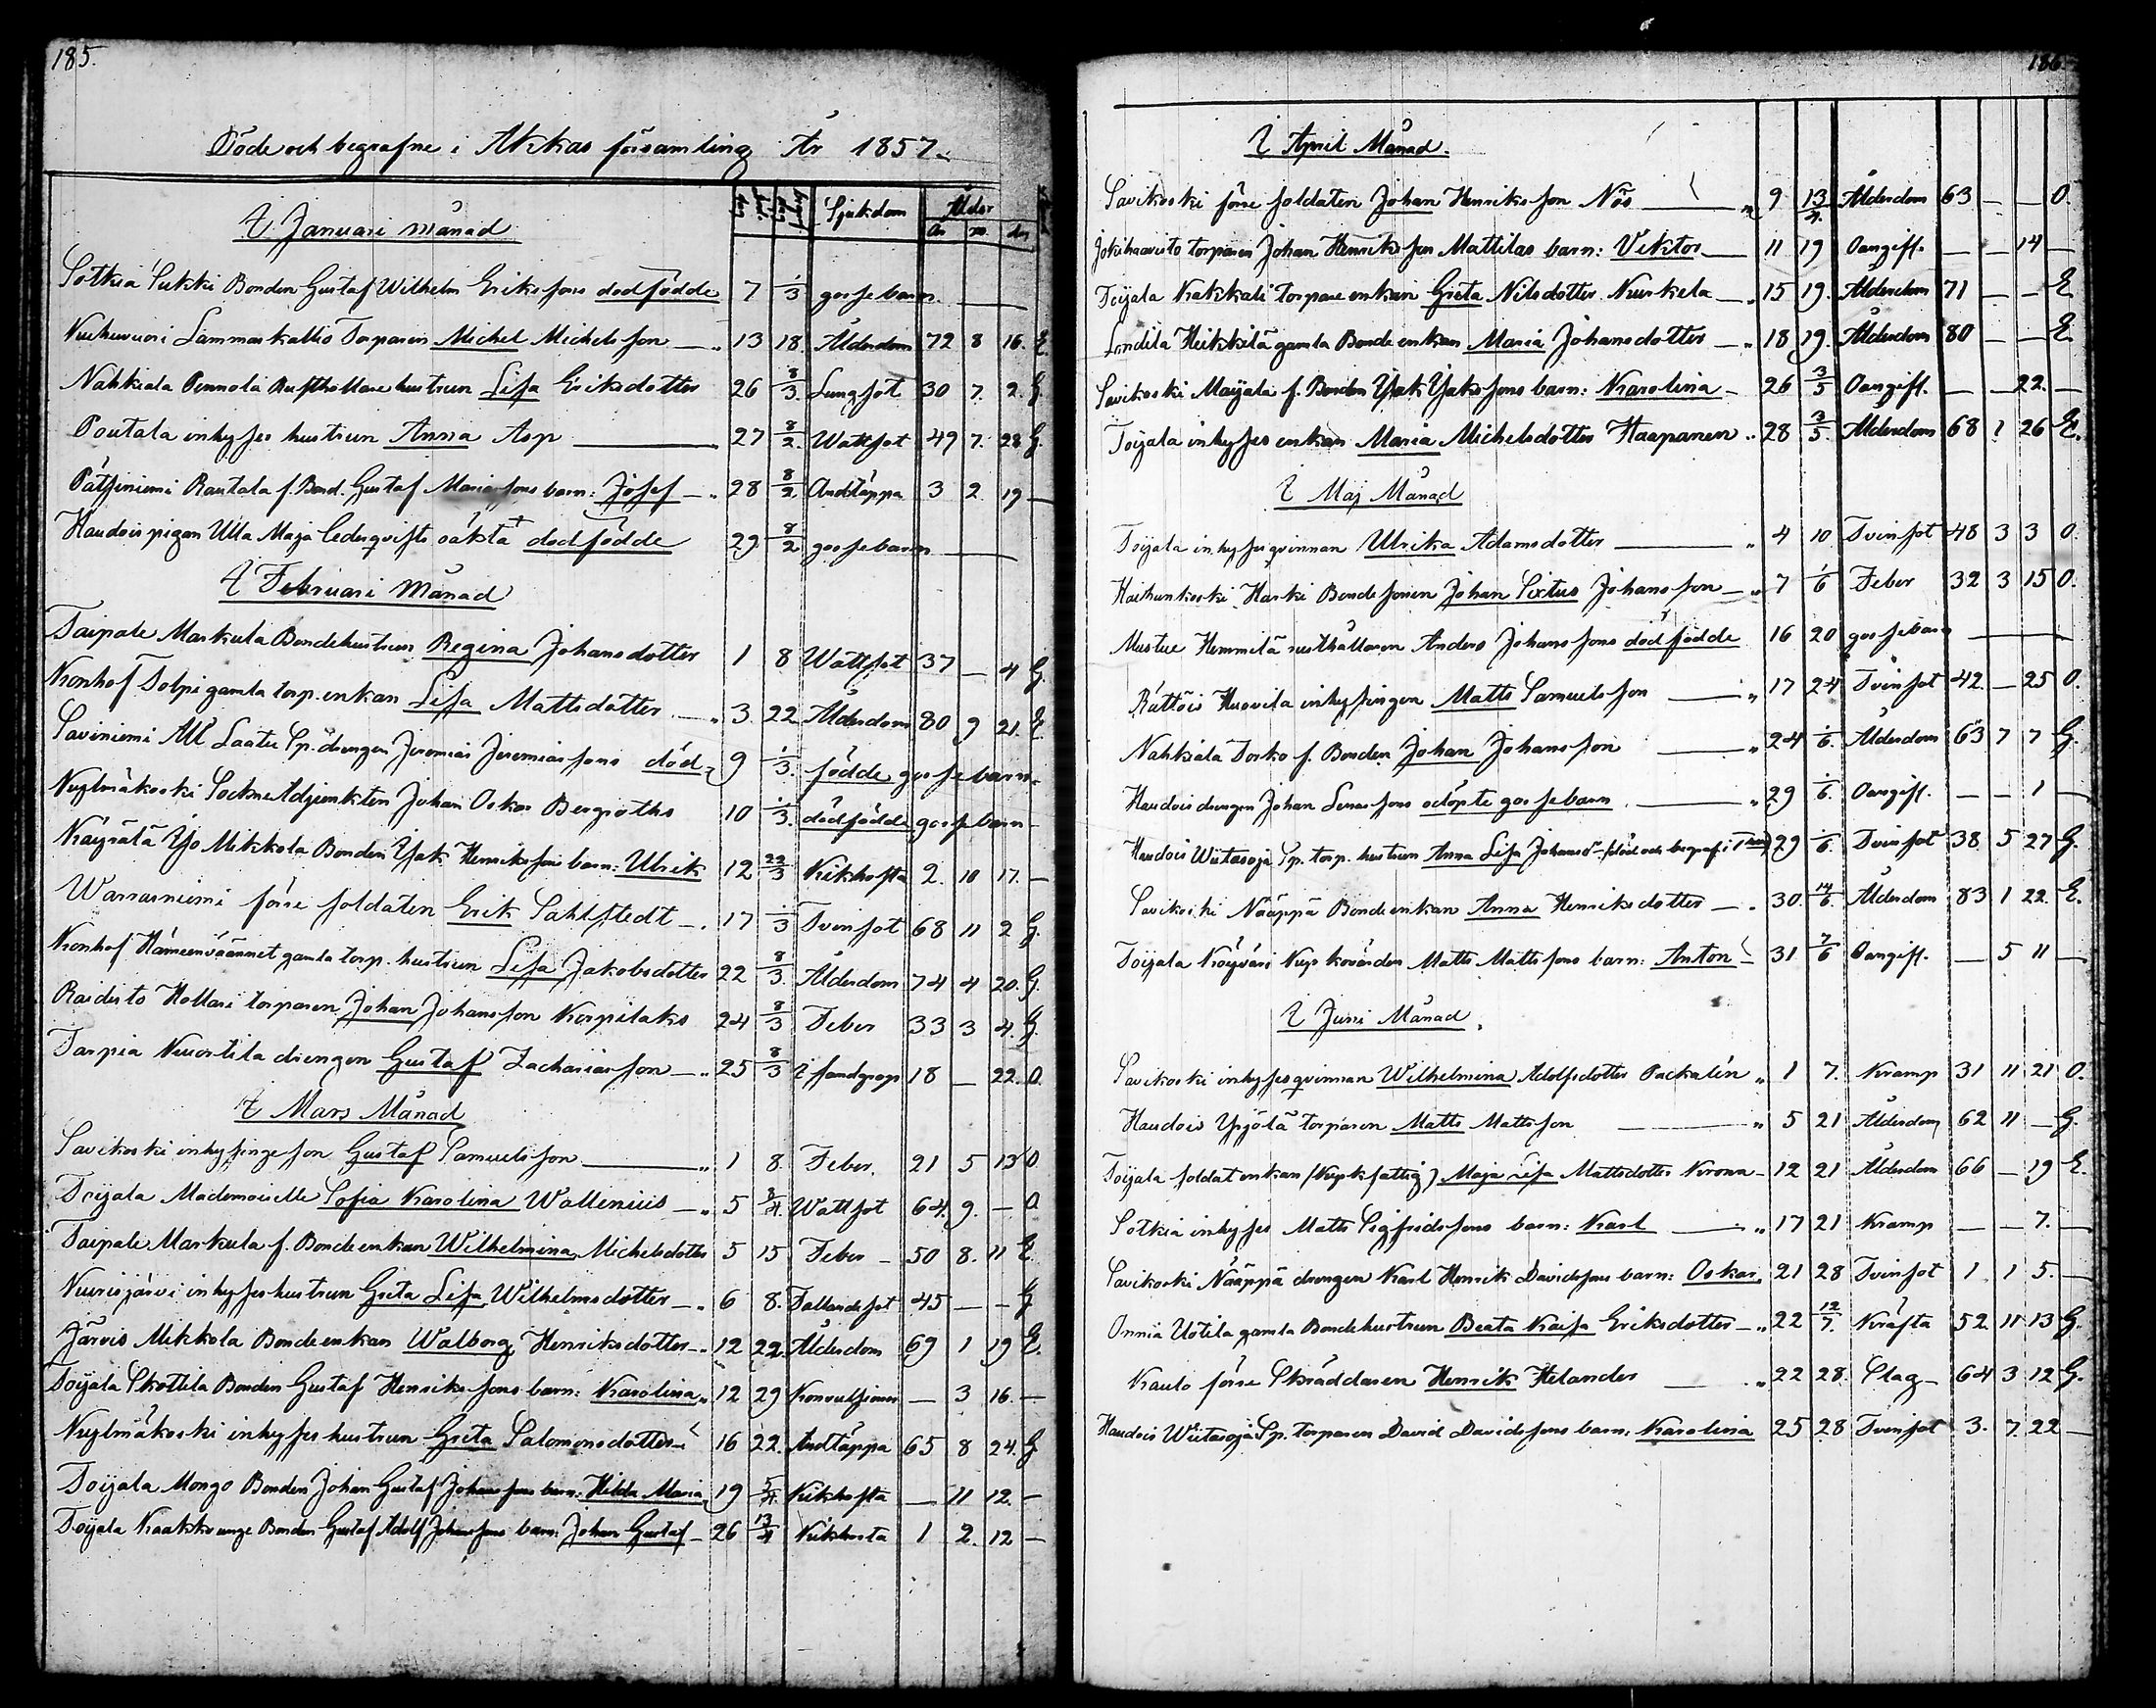 185.
Döde och begrafne i Akkas församling År 1857.
Sjukdom Ålder
år m. dr
I Januari månad
Sotkia Sukki Bonden Gustaf Wilhelm Erikssons dödfödde 7 1/3 gossebarn.
Lammaskallio Torparen Michel Michelsson 13 18. Ålderdom 72 8 16. E.
Nahkiala Pennola Rusthållarehustrun Lisa Eriksdotter 26 8/3. Lungsot 30 7. 2. G.
Poutala inhyses hustrun Anna Asp 27 8/2. Wattsot 49 7. 28 G.
Pätsiniemi Rautala f. Bond. Gustaf barn: Josef 28 8/2 Andtäppa 3 2. 19 —
Haudois pigan Ulla Maja Cederqvists oäkta dödfödde 29 8/2 gossebarn
I Februari Månad
Taipale Markula Bondehustrun Regina Johansdotter 1 8 Wattsot 37 — 4 G.
Kronhof Tolpi gamla torp. enkan Lisa Mattsdotter 3. 22 Ålderdom 80 9 21. E.
Saviniemi Ali Laatu Sp. drengen Jeremias Jeremiassons död- 9 1/3. födde gossebarn
Kylmäkoski Sockne Adjunkten Johan Oskar Bergroths 10 1/3. dödfödde gossebarn
Käyrälä Yso Mikkola Bonden Isak Henrikssons barn: Ulrik 12 22/3 Kikhosta 2. 10 17. —
Warrasniemi förre soldaten Erik Sahlstedt 17 1/3 Tvinsot 68 11 2 G.
Kronhof Hämeenväännet gamla torp. hustrun Lisa Jakobsdotter 22 8/3. Ålderdom 74 4 20. G.
Raidisto Hollari torparen Johan Johansson Korpilaks 24 8/3 Feber 33 3 4. G.
Tarpia Nuortila drengen Gustaf Zachariasson 25 8/3 I sandgrop 18 — 22. O.
I Mars Månad
Savikoski inhysinge son Gustaf Samuelsson 1 8. Feber. 21 5 13 O
Toijala Mademoiselle Sofia Karolina Wallenius 5 3/4. Wattsot 64. 9. — O
Taipale Markula f. Bondeenkan Wilhelmina Michelsdotter 5 15 Feber 50 8. 11 E.
Kurisjärvi inhyses hustrun Greta Lisa Wilhelmsdotter 6 8. Fallandesot 45 — — G
Järvis Mikkola Bondeenkan Walborg Henriksdotter 12 22. Ålderdom 69 1 19 E.
Toijala Skottila Bonden Gustaf Henrikssons barn: Karolina 12 29 Konvulsioner — 3 16. —
Kylmäkoski inhyses hustrun Greta Salomonsdotter 16 22. Andtäppa 65 8 24. G
Toijala Mongo Bonden Johan Gustaf Johanssons barn: Hilda Maria 19 5/4 Kikhosta — 11 12. —
Toijala Kaakko unge Bonden Gustaf Adolf Johanssons barn: Johan Gustaf 26 13/4 Kikhosta 1 2. 12 —
186.
I April Månad.
Savikoski förre soldaten Johan Henriksson Nös 9 13/4. Ålderdom 63 — — O.
torparen Johan Henriksson Mattilas barn: Viktor 11 19 Oangiff. — — 14 —
Toijala Kakkali Torpare enkan Greta Nilsdotter 15 19. Ålderdom 71 — — E
Heikkilä gamla Bonde enkan Maria Johansdotter 18 19. Ålderdom 80 — — E
Savikoski Maijala f. Bonden Isak Isakssons barn: Karolina 26 3/5 Oangiff. — — 22. —
Toijala inhyses enkan Maria Michelsdotter Haapanen 28 3/5. Ålderdom 68 1 26 E.
I Maj Månad
Toijala inhyses qvinnan Ulrika Adamsdotter 4 10 Tvinsot 48 3 3 O.
Haihunkoski Harki Bondesonen Johan Sixtus Johansson 7 1/6 Feber 32 3 15 O.
Mustue Hemmilä rusthållaren Anders Johanssons dödfödde 16 20 gossebarn
Rättöis Huovila inhysingen Matts Samuelsson 17 24 Tvinsot 42. — 25 O.
Nahkiala Dorko f. Bonden Johan Johansson 24 1/6. Ålderdom 63 7 7 G.
Haudois drengen Johan Lenassons odöpte gossebarn 29 1/6. Oangiff. — — 1 —
Haudois Wiitasoja Sp. torp. hustrun Anna Lisa Johansdr (död och begraf. i) 29 1/6. Tvinsot 38. 5 27 G.
Savikoski Nääppä Bondeenkan Anna Henriksdotter 30. 14/6. Ålderdom 83 1 22. E.
Toijala Köyväri Matts Mattssons barn: Anton 31 7/6 Oangiff. — 5 11 —
I Juni Månad.
Savikoski inhyses qvinnan Wilhelmina Adolfsdotter Packalén 1 7. Kramp 31 11 21 O.
Haudois Yrjölä torparen Matts Mattsson 5 21 Ålderdom 62 11 — G.
Toijala soldat enkan (Kyrkfattig) Maja Lisa Mattsdotter Krona 12 21 Ålderdom 66 — 19 E
Sotkia inhyses Matts Sigfridssons barn: Karl 17 21 Kramp — — 7. —
Savikoski Nääppä drengen Karl Henrik Davidssons barn: Oskar 21 28 Tvinsot 1 1 5. —
Onnia Uotila gamla Bondehustrun Beata Kaisa Eriksdotter 22 12/7. Kräfta 52 11 13 G.
Kaulo förre Skräddaren Henrik Helander 22 28. Slag 64 3 12 G.
Haudois Wiitasoja Sp. torparen David Davidssons barn: Karolina 25 28 Tvinsot 3. 7 22 —